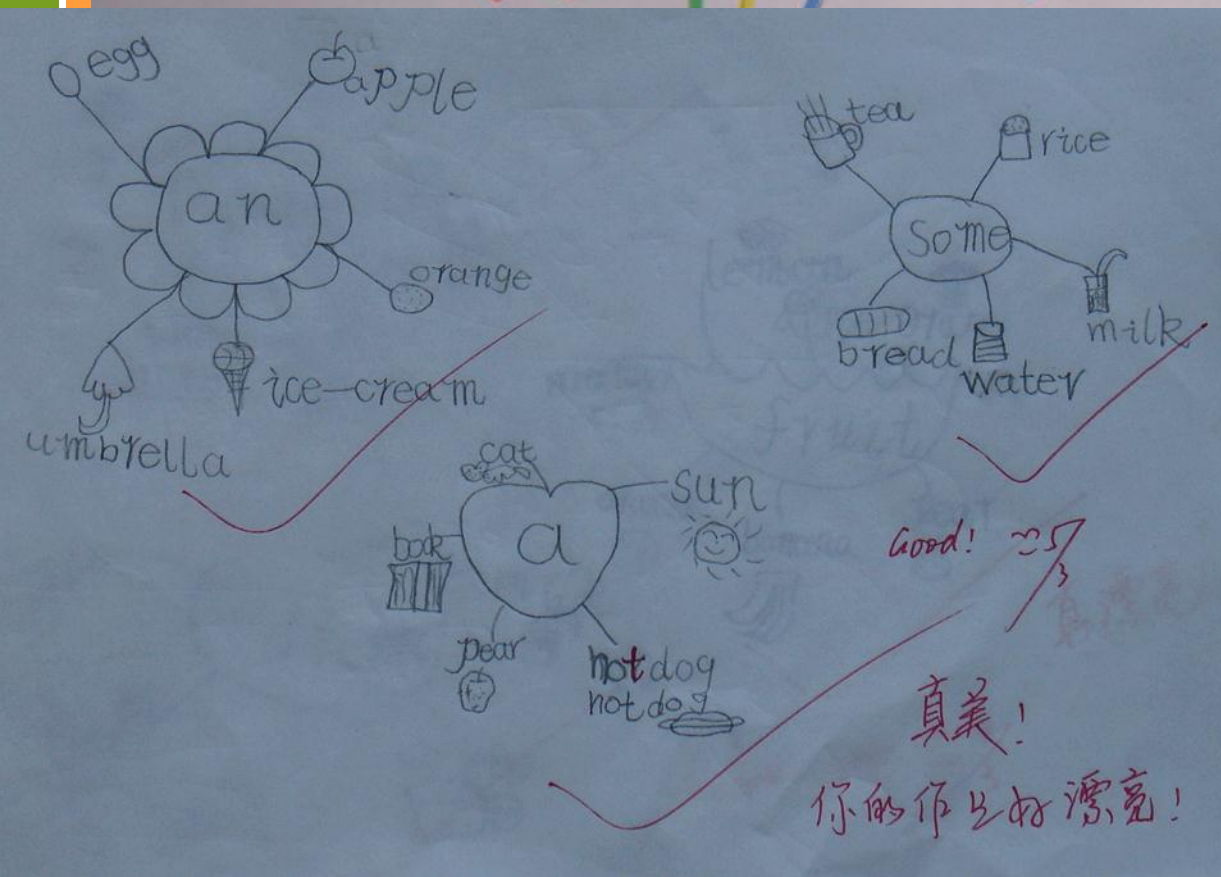 egg
apple
an
orange
ice-cream
umbrella
tea
rice
some
milk
water
bread
cat
sun
a
book
pear
hotdog
hotdog
Good!
5/3
真美!
你的作品好漂亮!